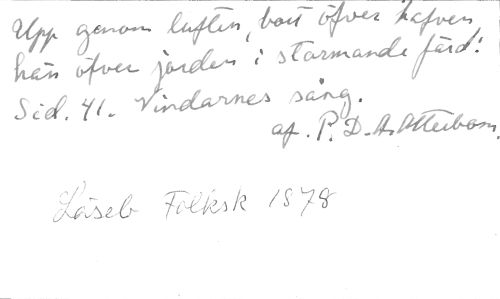 Upp genom luften, bort öfver hafven,
hän öfver jorden i stormande färd!
Sid. 41. Vindarnes sång.
af. P. D. A. Atterbom.
Läseb Folksk 1878